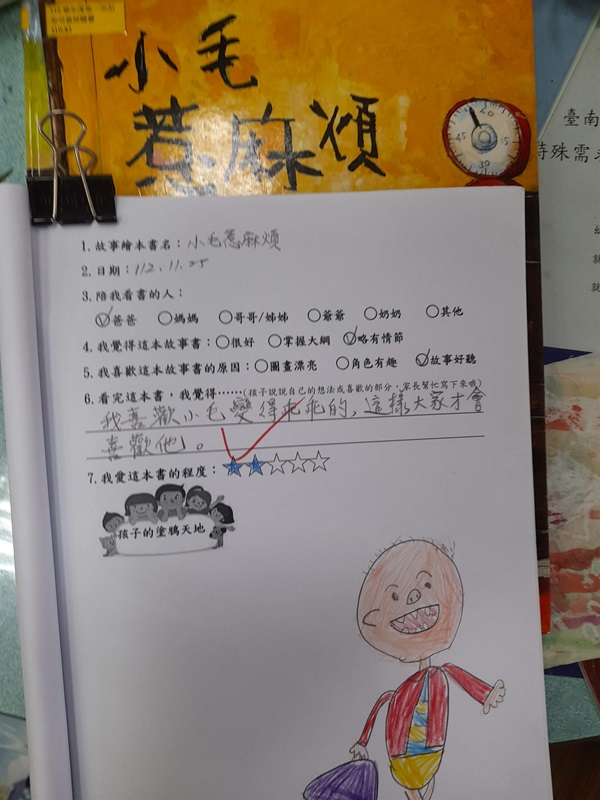 小毛
惹麻煩
60
45
15
30
臺南
特殊需求
1.故事繪本書名：小毛惹麻煩
2.日期：112.11.25
3.陪我看書的人：
爸爸 媽媽 哥哥/姊姊 爺爺 奶奶 其他
4.我覺得這本故事書：很好 掌握大綱 略有情節
5.我喜歡這本故事書的原因：圖畫漂亮 角色有趣 故事好聽
6.看完這本書，我覺得……(孩子說說自己的想法或喜歡的部分，家長幫忙寫下來哦)
我喜歡小毛變得乖乖的，這樣大家才會
喜歡他」。
7.我愛這本書的程度：★★☆☆☆
孩子的塗鴉天地